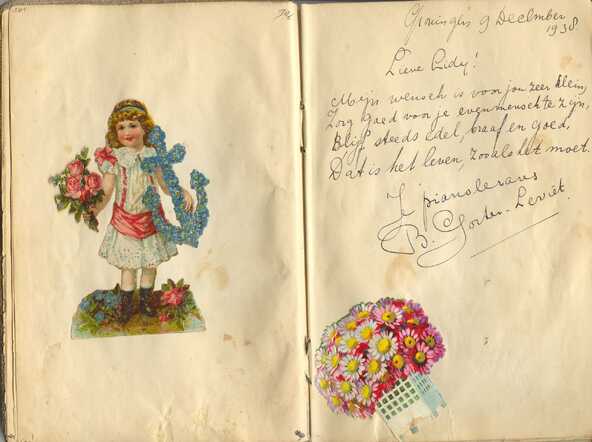 Groningen 9 December
1938.
Lieve
Mijn wensch is voor jou zeer klein,
Zorg goed voor je evenmensch te zijn,
Blijf steeds edel, braaf en goed,
Dat is het leven, zooals het moet.
Je pianolerares
B.